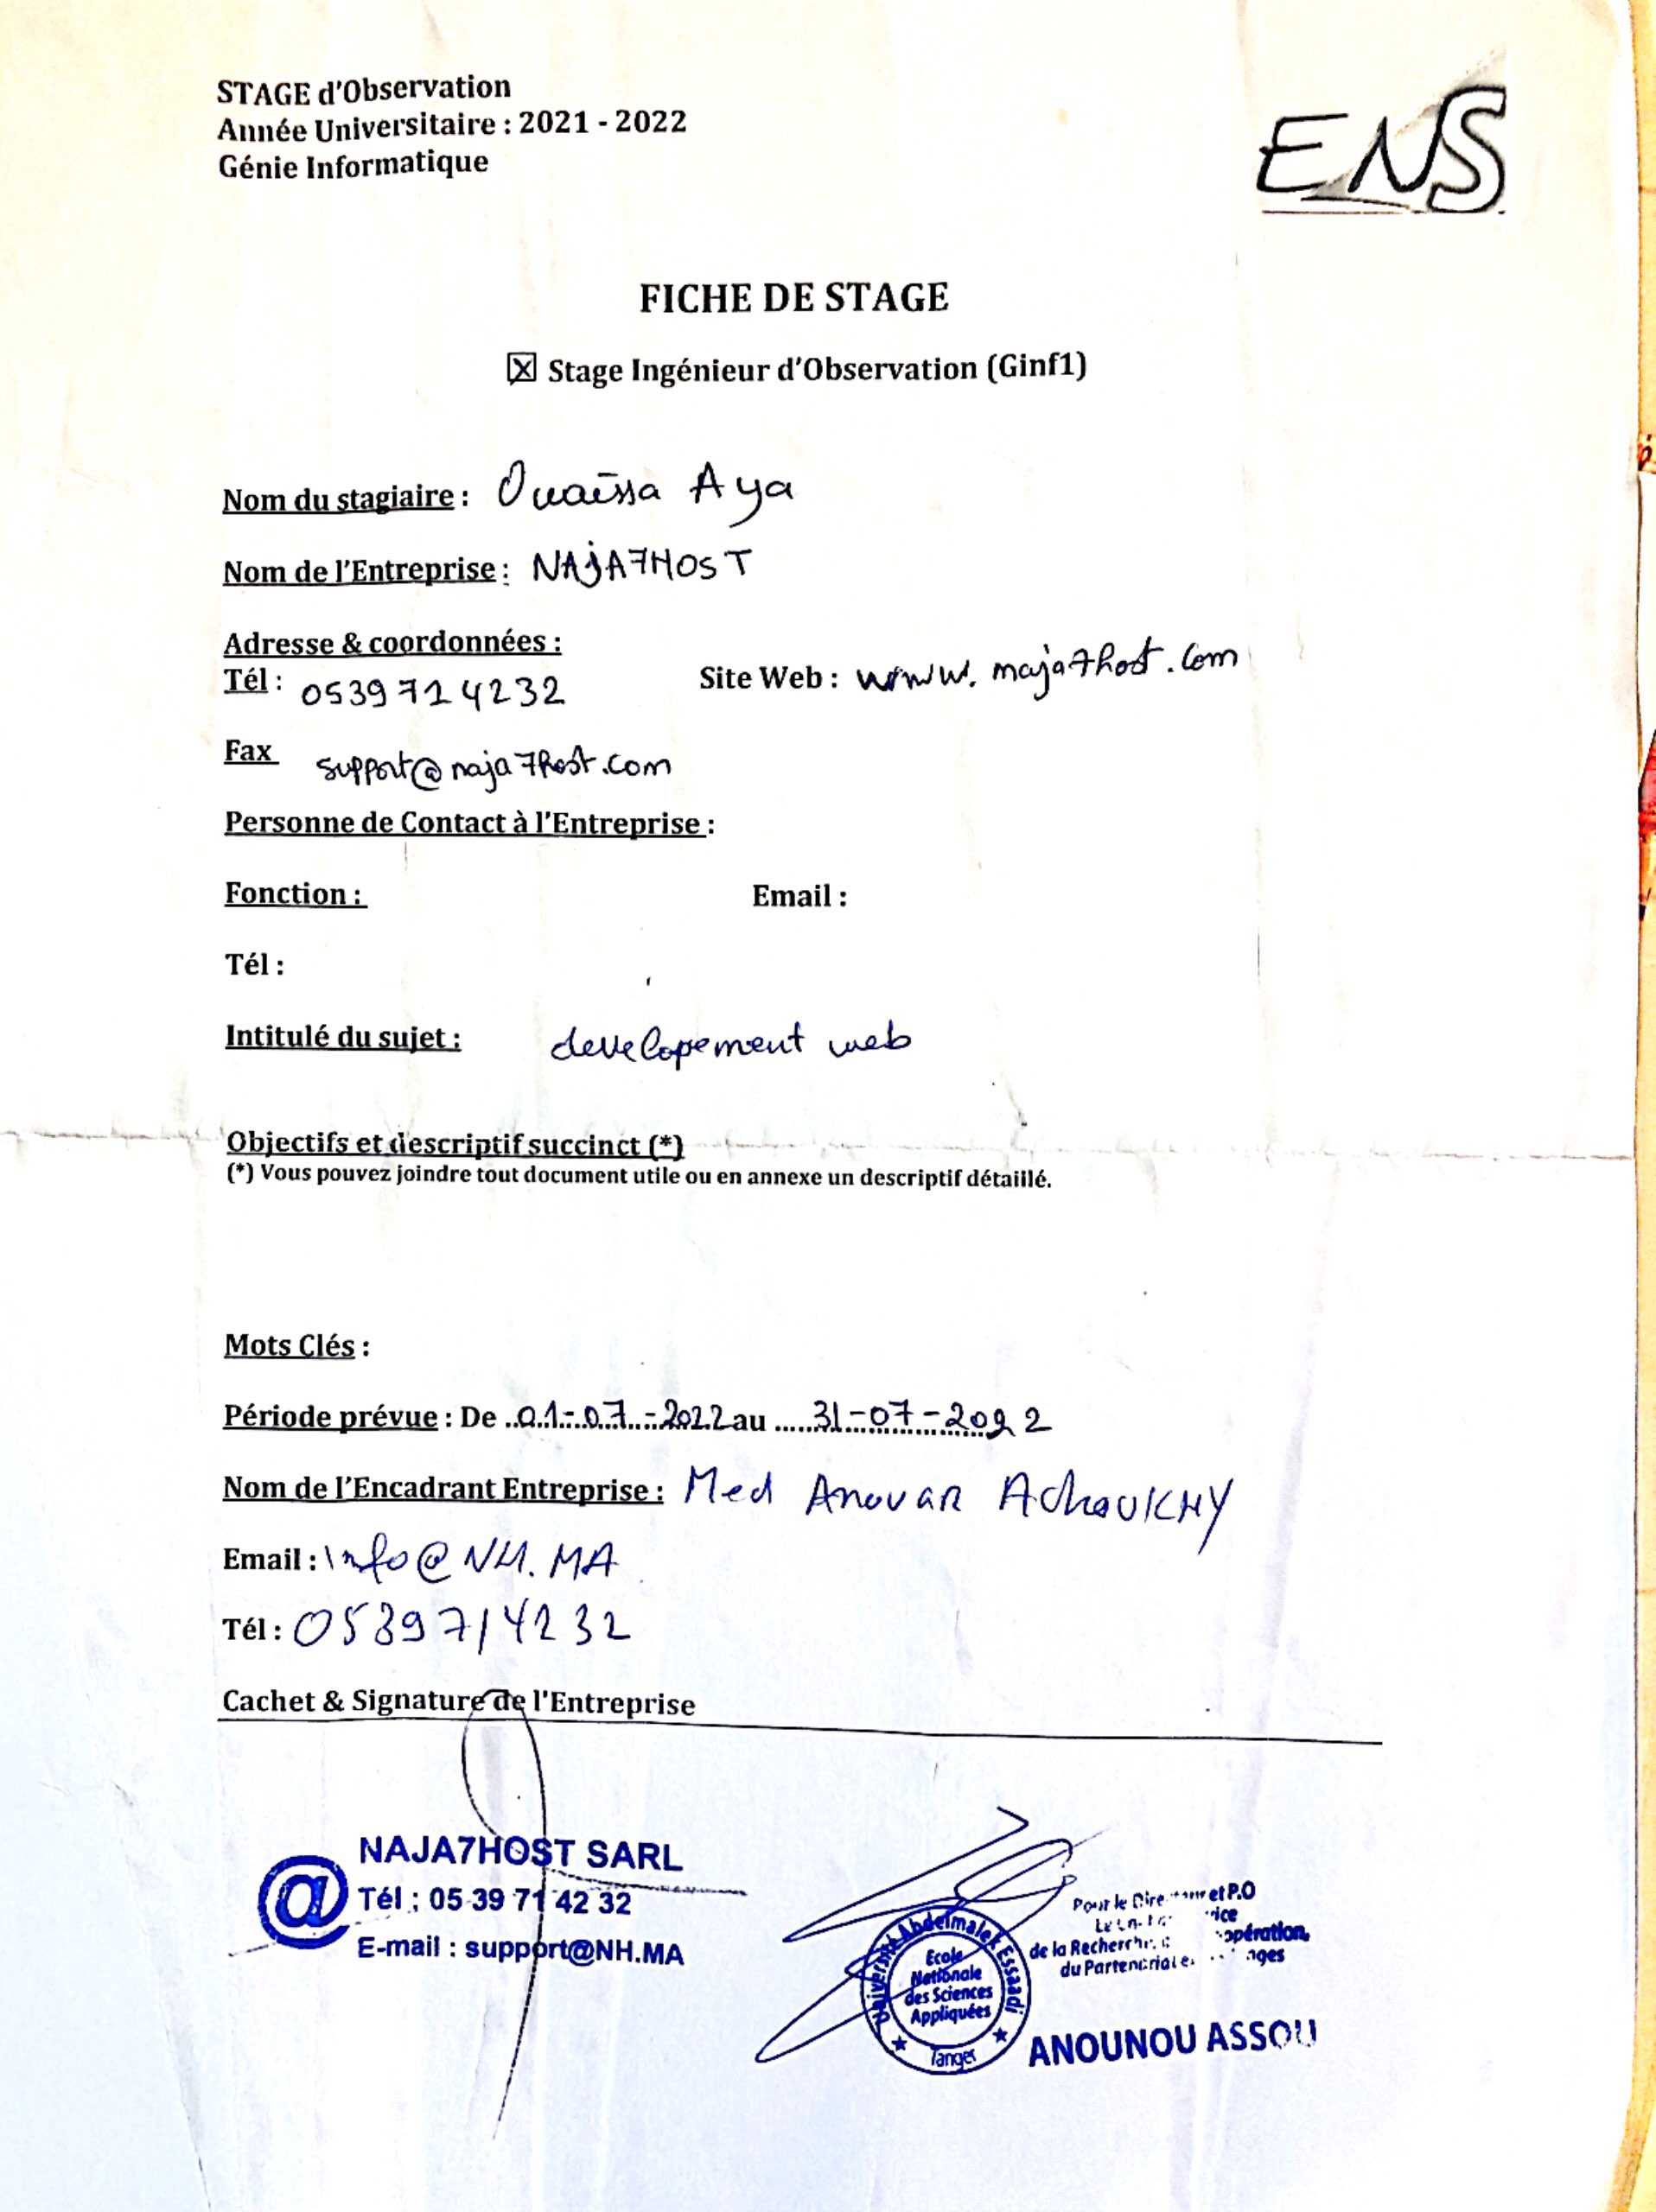 STAGE d'Observation
Année Universitaire : 2021 - 2022
Génie Informatique
ENS
FICHE DE STAGE
☒ Stage Ingénieur d'Observation (Ginf1)
Nom du stagiaire : Ouaissa Aya
Nom de l'Entreprise : NAJA7HOST
Adresse & coordonnées :
Tél : 0539714232 Site Web : www.naja7host.com
Fax support@naja7host.com
Personne de Contact à l'Entreprise :
Fonction : Email :
Tél :
Intitulé du sujet : developement web
Objectifs et descriptif succinct (*)
(*) Vous pouvez joindre tout document utile ou en annexe un descriptif détaillé.
Mots Clés :
Période prévue : De ..01-07-2022 au .....31-07-2022
Nom de l'Encadrant Entreprise : Med Anouar AchouKHY
Email : Info@NH.MA
Tél : 0539714232
Cachet & Signature de l'Entreprise
NAJA7HOST SARL
@ Tél : 05 39 71 42 32
E-mail : support@NH.MA
Université Abdelmalek Essaadi
Ecole
Nationale
des Sciences
Appliquées
Tanger
Pour le et P.O
de la Recherche
du Partenariat
ANOUNOU ASSOU